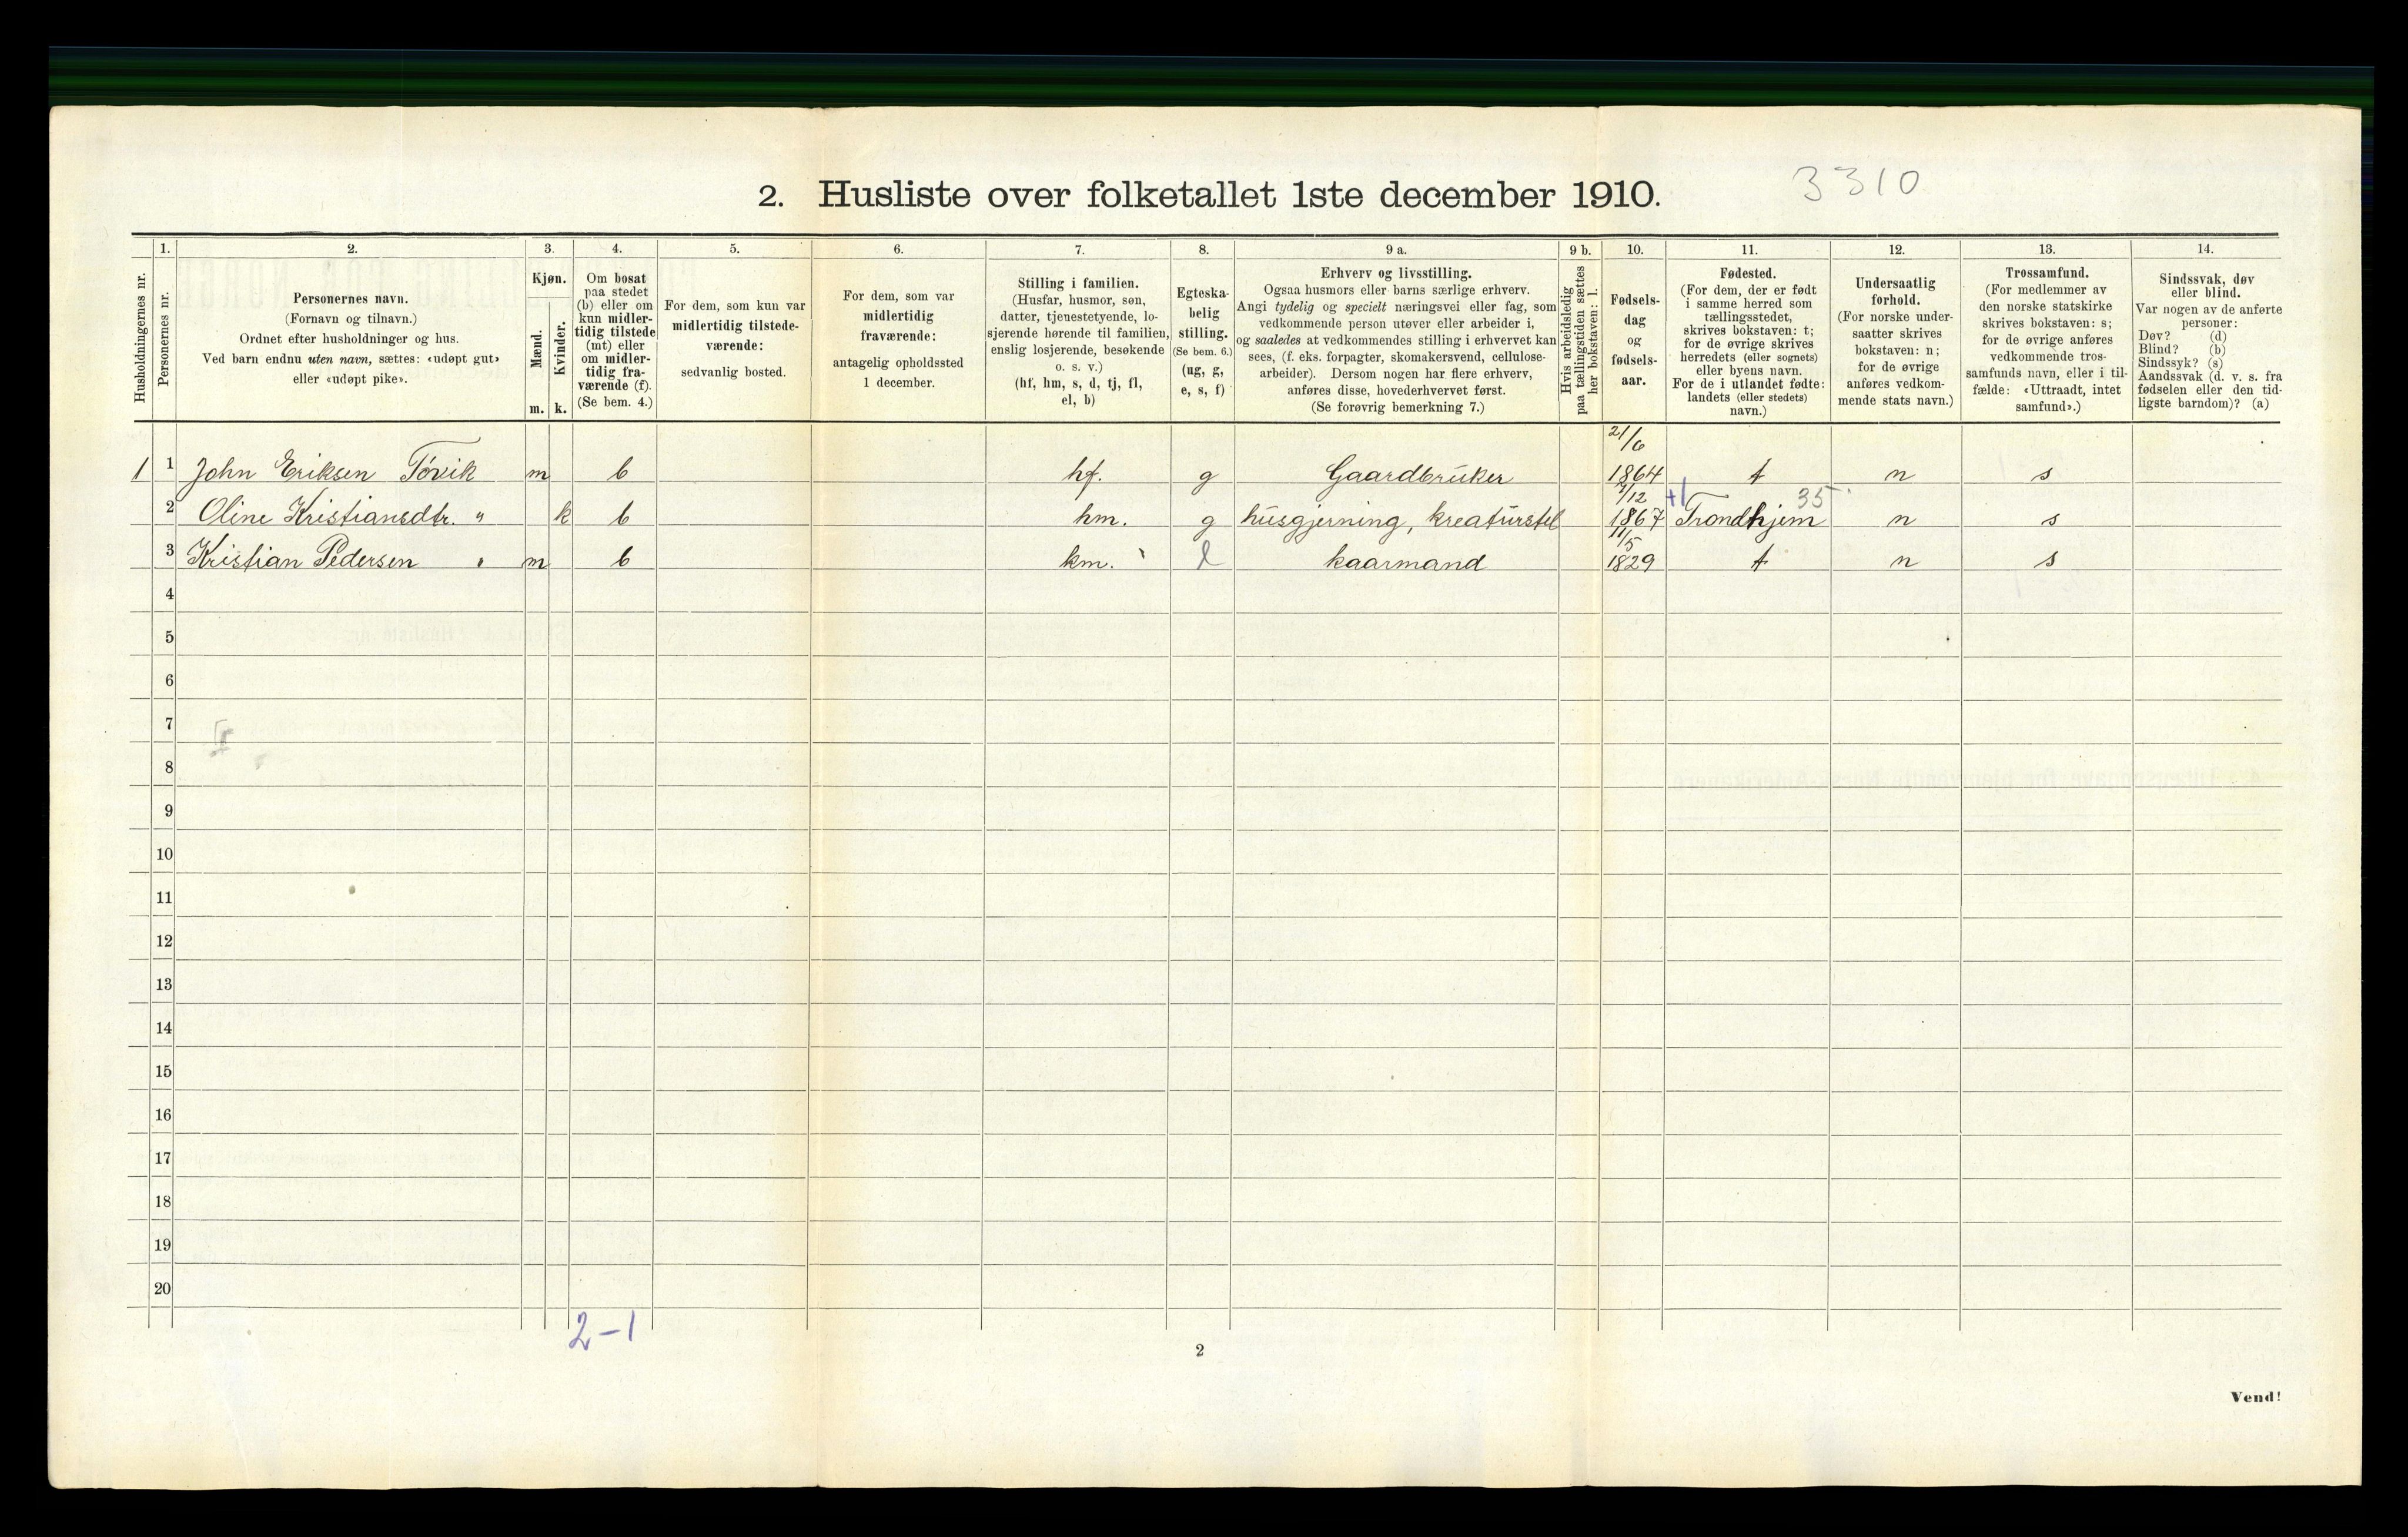 3310
2. Husliste over folketallet 1ste december 1910.
Husholdningernes nr.
1.
Personernes nr.
2.
Personernes navn.
(Fornavn og tilnavn.)
Ordnet efter husholdninger og hus.
Ved barn endnu uten navn, sættes: «udøpt gut»
eller «udøpt pike».
3.
Kjøn.
Mænd.
m.
Kvinder.
k.
4.
Om bosat
paa stedet
(b) eller om
kun midler-
tidig tilstede
(mt) eller
om midler-
tidig fra-
værende (f).
(Se bem. 4.)
5.
For dem, som kun var
midlertidig tilstede-
værende:
sedvanlig bosted.
6.
For dem, som var
midlertidig
fraværende:
antagelig opholdssted
1 december.
7.
Stilling i familien.
(Husfar, husmor, søn,
datter, tjenestetyende, lo-
sjerende hørende til familien,
enslig losjerende, besøkende
o. s. v.)
(hf, hm, s, d, tj, fl,
el, b)
8.
Egteska-
belig
stilling.
(Se bem. 6.)
(ug, g,
e, s, f)
9 a.
Erhverv og livsstilling.
Ogsaa husmors eller barns særlige erhverv.
Angi tydelig og specielt næringsvei eller fag, som
vedkommende person utøver eller arbeider i,
og saaledes at vedkommendes stilling i erhvervet kan
sees, (f. eks. forpagter, skomakersvend, cellulose-
arbeider). Dersom nogen har flere erhverv,
anføres disse, hovederhvervet først.
(Se forøvrig bemerkning 7.)
9 b.
Hvis arbeidsledig
paa tællingstiden sættes
her bokstaven: l.
10.
Fødsels-
dag
og
fødsels-
aar.
11.
Fødested.
(For dem, der er født
i samme herred som
tællingsstedet,
skrives bokstaven: t;
for de øvrige skrives
herredets (eller sognets)
eller byens navn.
For de i utlandet fødte:
landets (eller stedets)
navn.)
12.
Undersaatlig
forhold.
(For norske under-
saatter skrives
bokstaven: n;
for de øvrige
anføres vedkom-
mende stats navn.)
13.
Trossamfund.
(For medlemmer av
den norske statskirke
skrives bokstaven: s;
for de øvrige anføres
vedkommende tros-
samfunds navn, eller i til-
fælde: «Uttraadt, intet
samfund».)
14.
Sindssvak, døv
eller blind.
Var nogen av de anførte
personer:
Døv? (d)
Blind? (b)
Sindssyk? (s)
Aandssvak (d. v. s. fra
fødselen eller den tid-
ligste barndom)? (a)
1 1 John Eriksen Tóvik m b hf. g Gaardbrúker 21/6 1864 t n s
2 Oline Kristiansdtr. " k b hm. g húsgjerning, kreatúrstel 7/12 1867 +1 Trondhjem 35 n s
3 Kristian Pedersen " m b km. kaarmand 11/5 1829 t n s
4
5
6
7
8
9
10
11
12
13
14
15
16
17
18
19
20
2-1
2
Vend!